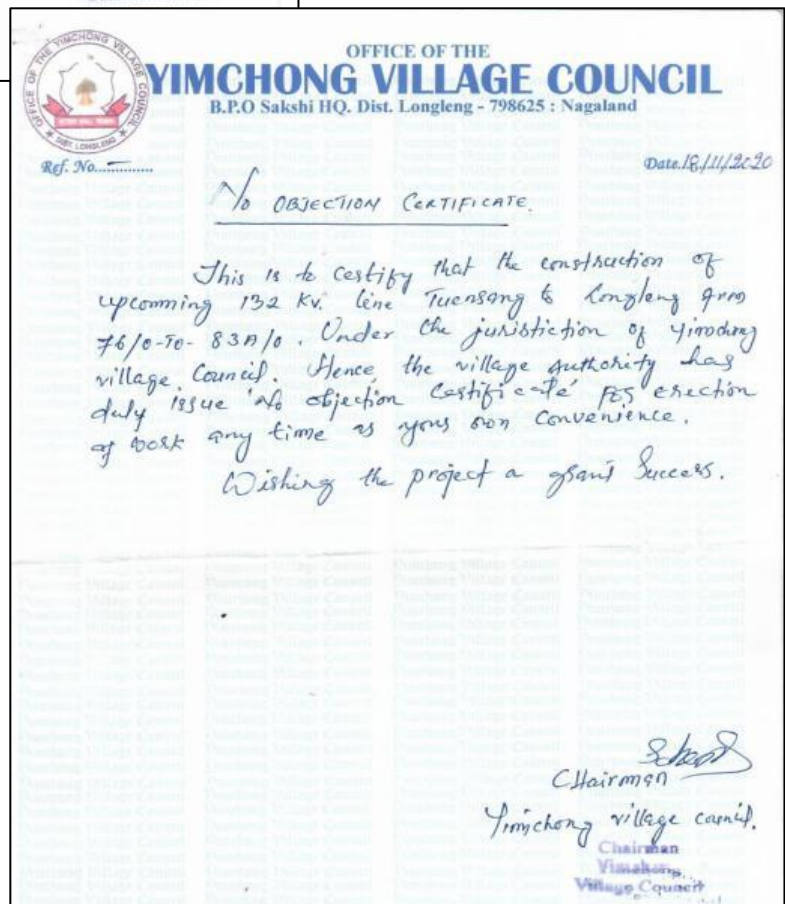 OFFICE OF THE YIMCHONG VILLAGE COUNCIL
DIST. LONGLENG
OFFICE OF THE
YIMCHONG VILLAGE COUNCIL
B.P.O Sakshi HQ. Dist. Longleng - 798625 : Nagaland
Ref. No.............. Date.18/11/2020
No OBJECTION CERTIFICATE.
This is to certify that the construction of
upcomming 132 KV. line Tuensang to Longleng from
76/0-To- 83A/0. Under the juristiction of Yimchong
village Council. Hence, the village authority has
duly issue no objection certificate for erection
of work any time as your own convenience.
Wishing the project a grant Success.
CHairman
Yimchong village council.
Chairman
Village Council